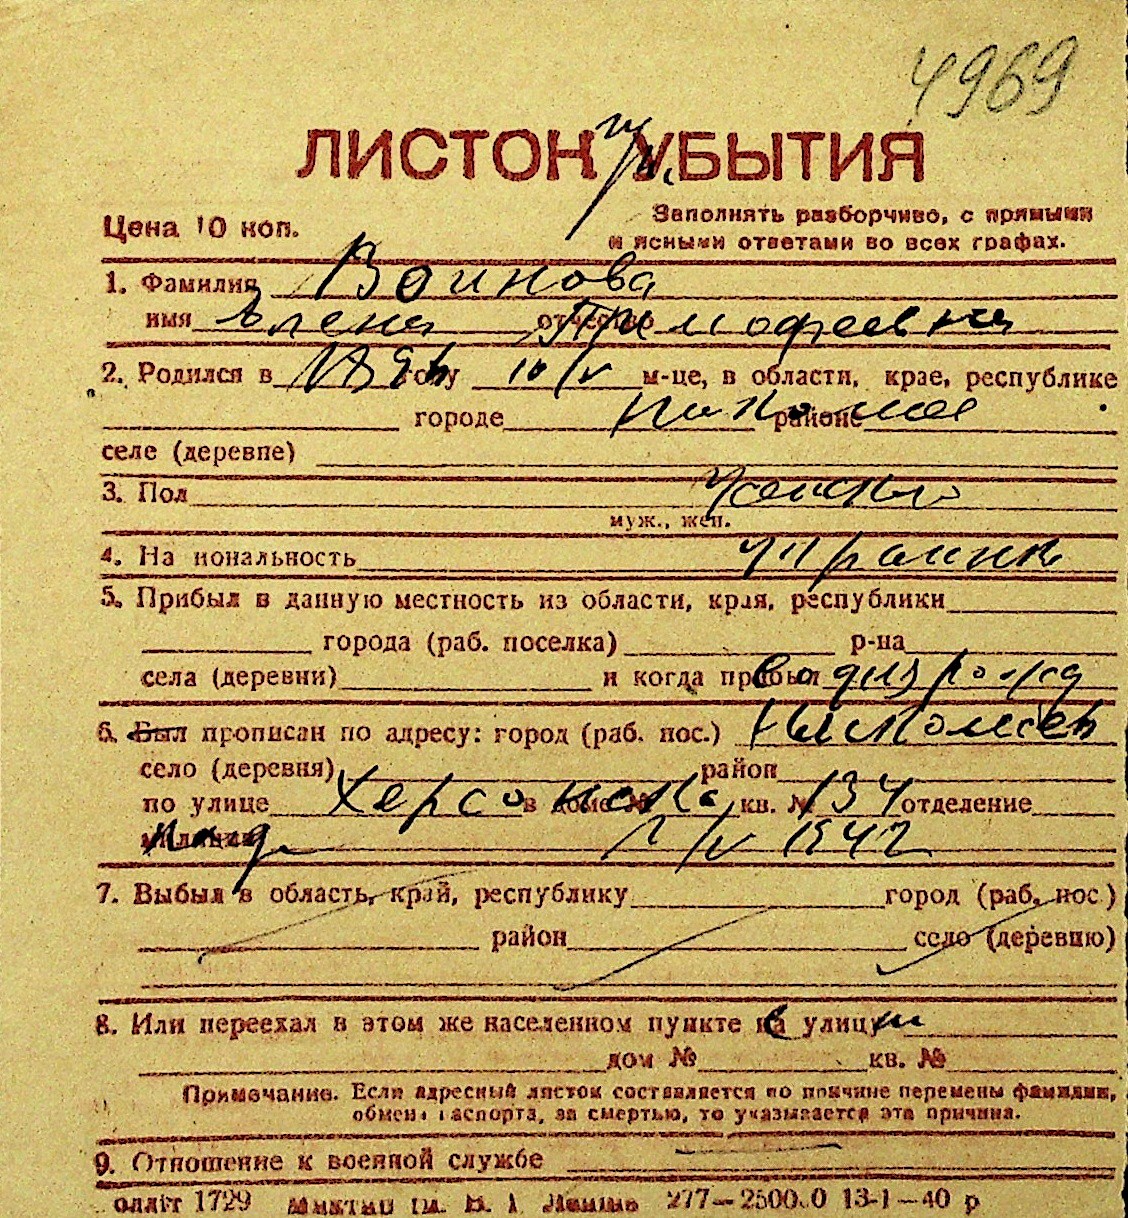 4969
ЛИСТОК УБЫТИЯ
Цена 10 коп.
Заполнять разборчиво, с прямыми
и ясными ответами во всех графах.
1. Фамилия Воинова
имя Елена отчество Тимофеевна
2. Родился в году 10/V м-це, в области, крае, республике
городе районе
селе (деревне)
3. Пол
муж., жен.
4. На иональность
5. Прибыл в данную местность из области, края, республики
города (раб. поселка) р-на
села (деревни) и когда прибыл
6. Был прописан по адресу: город (раб. пос.)
село (деревня) район
по улице Херсонска в доме № кв. № 134 отделение
милиции /V 1942
7. Выбыл в область, край, республику город (раб. пос.)
район село (деревню)
8. Или переехал в этом же населенном пункте на улицу
дом № кв. №
Примечание. Если адресный листок составляется по причине перемены фамилии,
обмен паспорта, за смертью, то указывается эта причина.
9. Отношение к военной службе
1729 277—2500.0 13-1—40 р